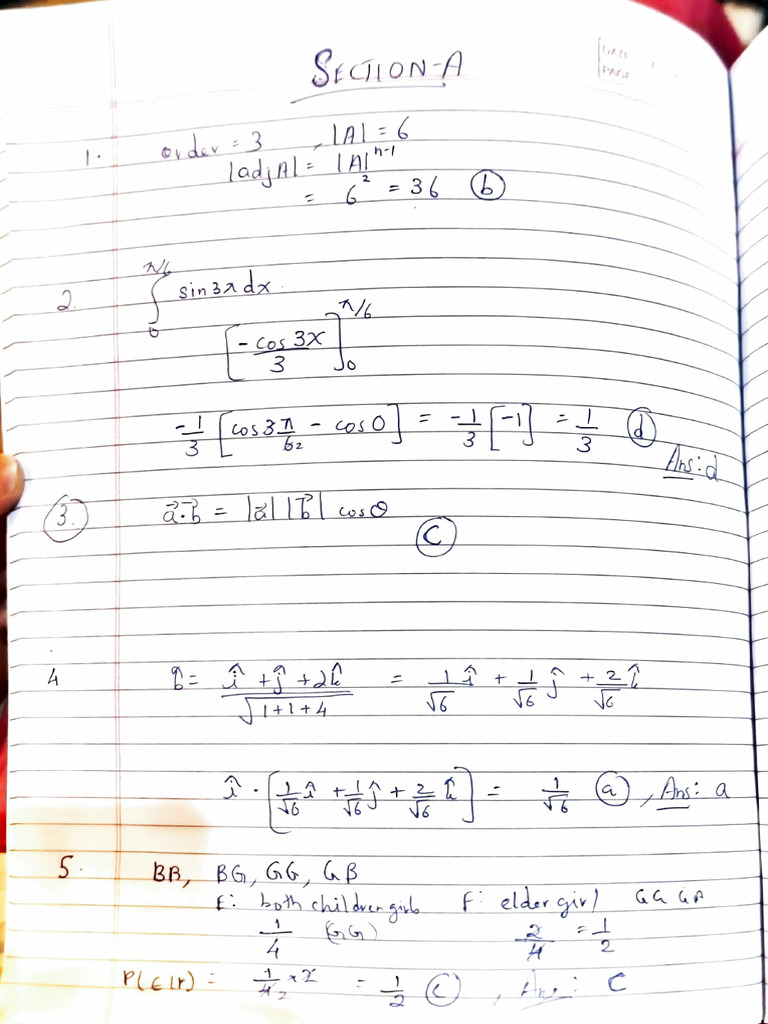 SECTION-A
DATE
PAGE
1. order = 3 , |A| = 6
|adjA| = |A|ⁿ⁻¹
= 6² = 36 (b)
2. ∫₀^π/6 sin3x dx
[-cos 3x / 3]₀^π/6
-1/3 [cos3π/6₂ - cos0] = -1/3 [-1] = 1/3 (d)
Ans: d
(3.) a⃗·b⃗ = |a⃗| |b⃗| cosθ
(C)
4 b̂ = (î + ĵ + 2k̂)/√(1+1+4) = 1/√6 î + 1/√6 ĵ + 2/√6 k̂
î · [1/√6 î + 1/√6 ĵ + 2/√6 k̂] = 1/√6 (a) , Ans: a
5. BB, BG, GG, GB
E: both children girls F: elder girl GG GB
1/4 (GG) 2/4 = 1/2
P(E|F) = 1/4₂ × 2 = 1/2 (C) , Ans: C